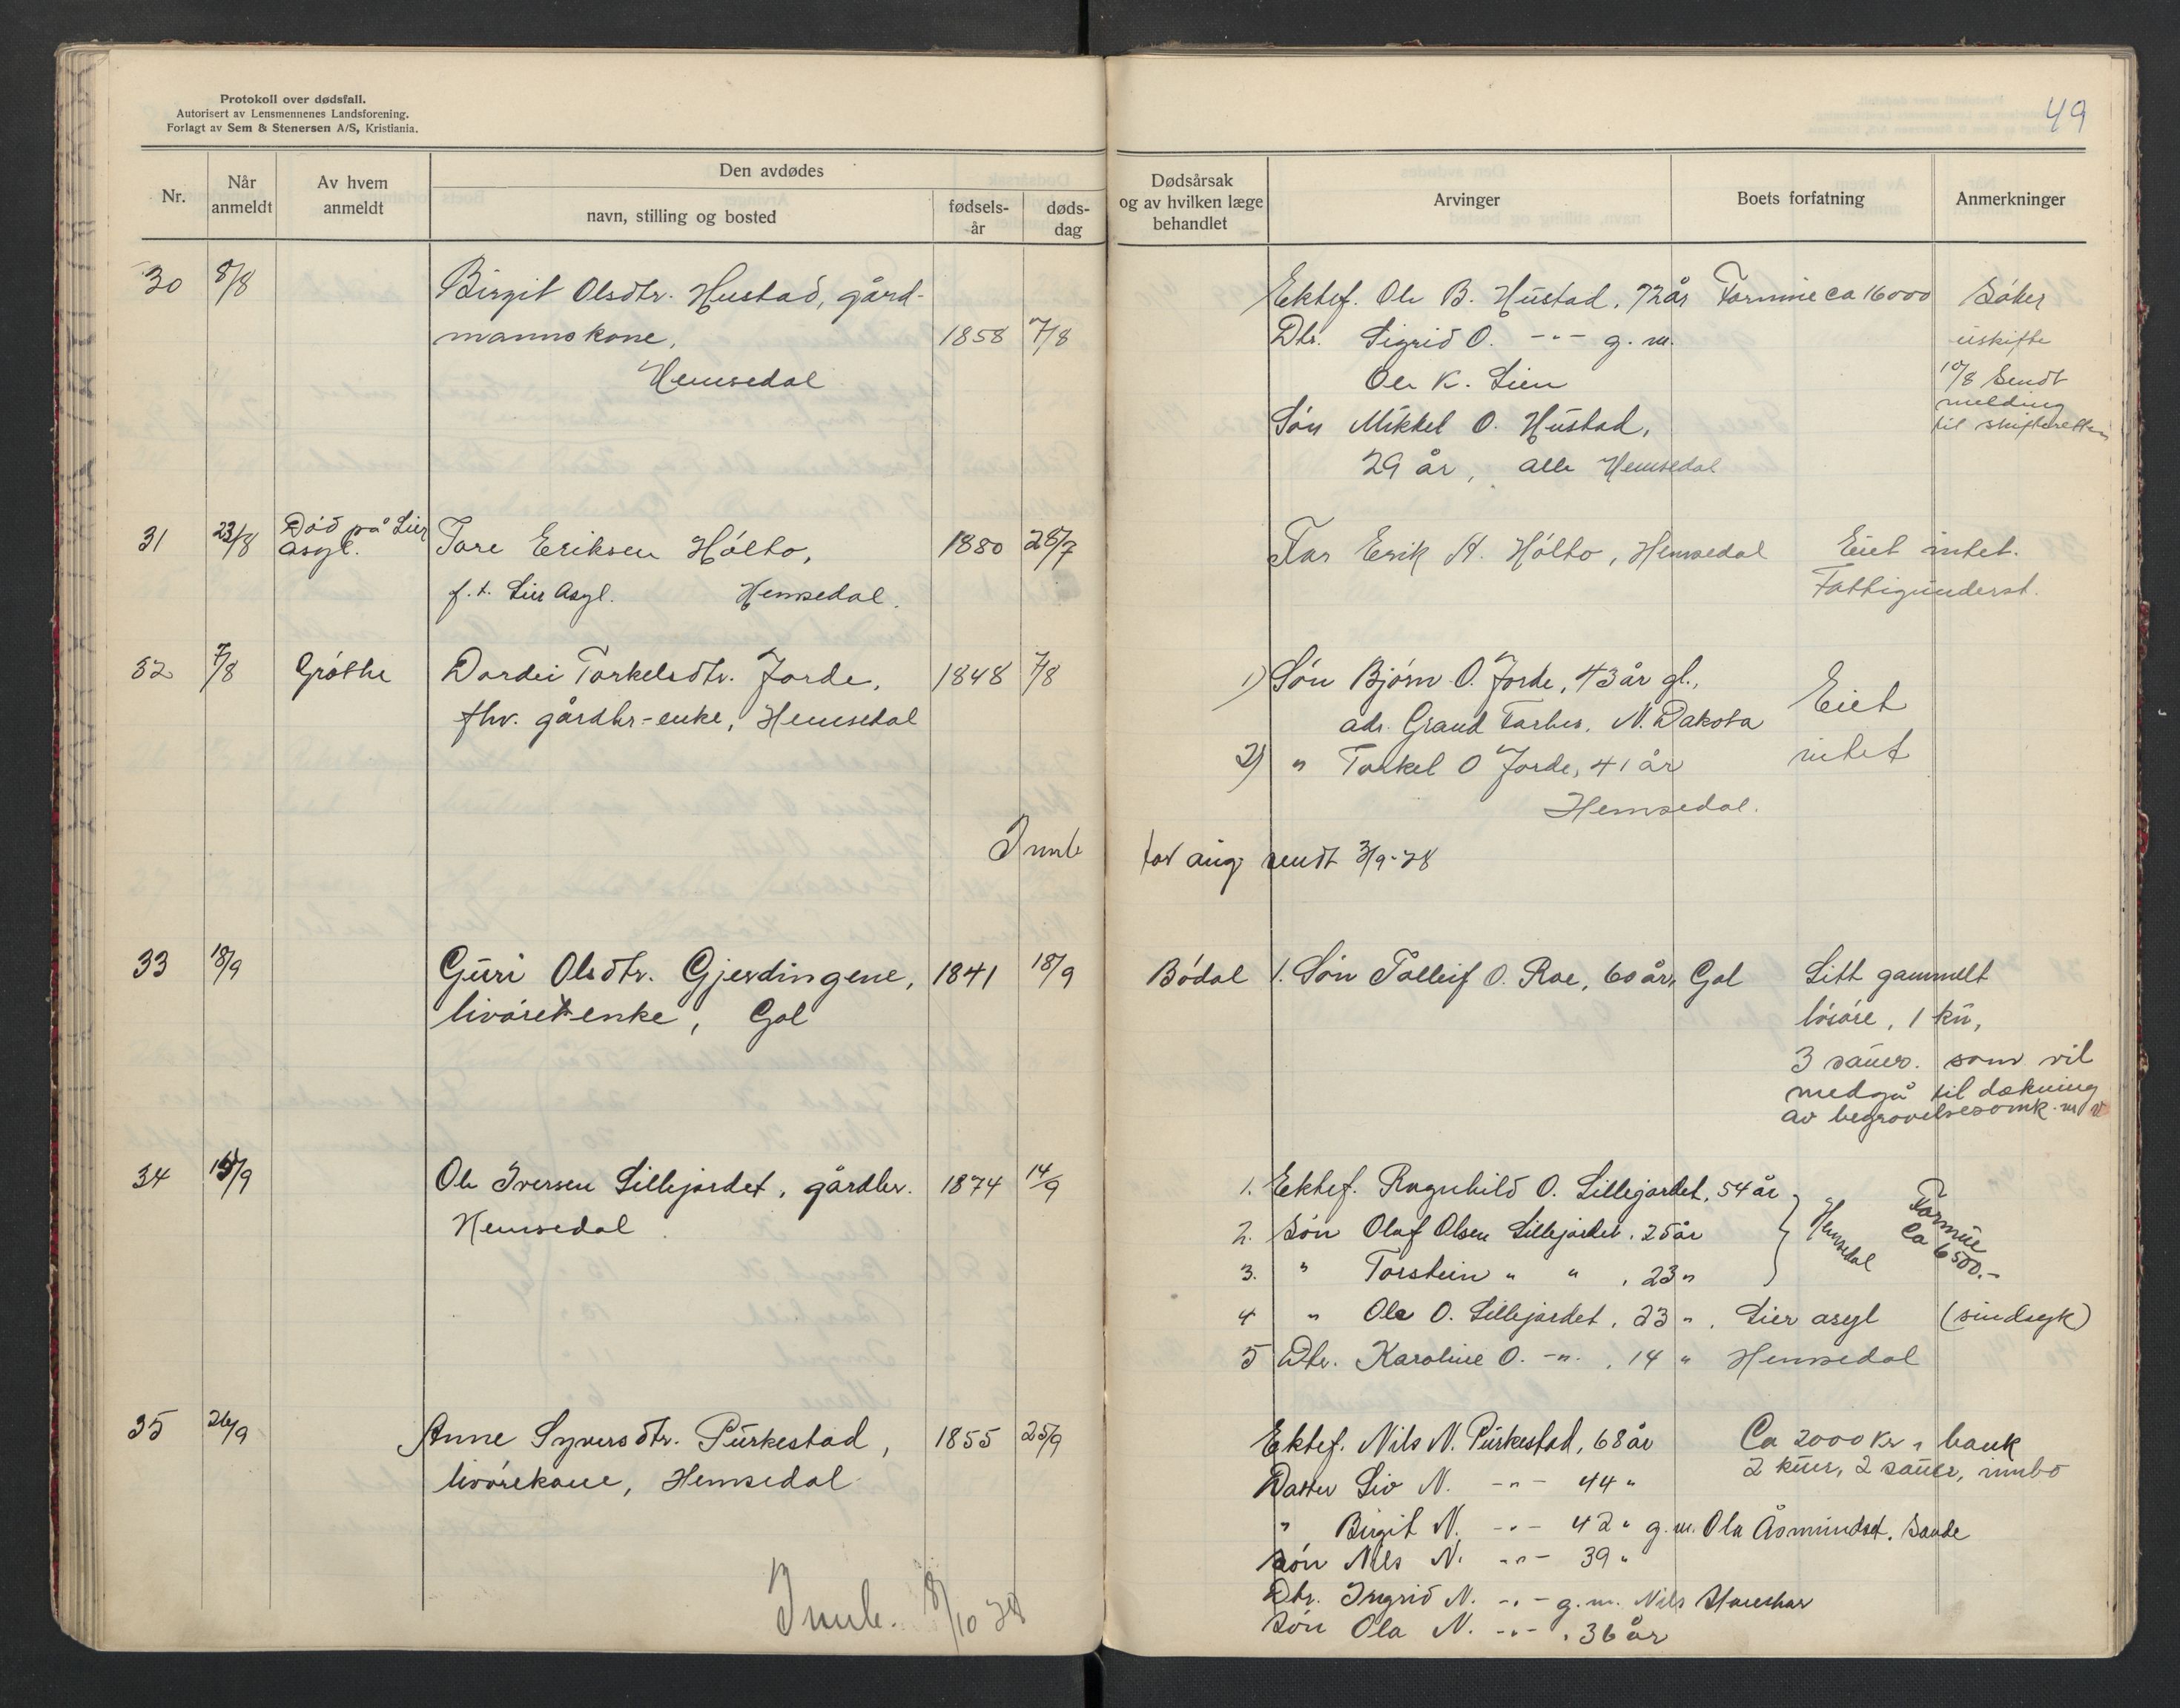 Protokoll over dødsfall.
Autorisert av Lensmennenes Landsforening.
Forlagt av Sem & Stenersen A/S, Kristiania.
49
Nr.
Når anmeldt
Av hvem anmeldt
Den avdødes
navn, stilling og bosted
fødsels-år
døds-dag
Dødsårsak og av hvilken læge behandlet
Arvinger
Boets forfatning
Anmerkninger
30 8/8 Birgit Olsdtr. Hustad, gård-
mannskone, 1858 7/8
Hemsedal
Ektef. Ole B. Hustad, 72 år Formue ca 16000 Søker
Dtr. Sigrid O. -"- g. m. uskifte
Ole K. Lien 10/8 Sendt
melding
Søn Mikkel O. Hustad, til skifteretten
29 år, alle Hemsedal
31 23/8 Død på Lier
asyl. Tore Eriksen Hólto, 1880 28/7
f. t. Lier Asyl. Hemsedal.
Far Erik H. Hólto, Hemsedal Eiet intet.
Fattigunderst.
32 7/8 Gróthe Dordei Torkelsdtr. Jorde, 1848 7/8
fhv. gårdbr-enke, Hemsedal
1) Søn Bjørn O. Jorde, 43 år gl., Eiet
adr. Grand Forks. N. Dakota
2) " Torkel O Jorde, 41 år intet
Hemsedal.
Innb for aug sendt 3/9-28
33 18/9 Guri Olsdtr. Gjerdingene, 1841 18/9
livóretenke, Gol
Bódal 1. Søn Tolleif O. Roe, 60 år, Gol Litt gammelt
lósóre, 1 ku,
3 sauer. som vil
medgå til dækning
av begravelsesomk. m v
34 15/9 Ole Iversen Lillejordet, gårdbr. 1874 14/9
Hemsedal
1. Ektef. Ragnhild O. Lillejordet, 54 år
2. Søn Olaf Olsen Lillejordet, 25 år
3. " Torstein " " , 23 "
Hemsedal
Formue
Ca 6500.-
4 " Ole O. Lillejordet, 23 ". Lier asyl (sindsyk)
5 Dtr. Karoline O. -"-, 14 " Hemsedal
35 26/9 Anne Syversdtr. Purkestad, 1855 25/9
livórekone, Hemsedal
Ektef. Nils N. Purkestad, 68 år Ca 2000 Kr i bank
2 kuer, 2 sauer, innbo
Datter Liv N. -"- 44 "
" Birgit N. -"- 42 " g. m. Ola Åsmundset, Sande
Søn Nils N. -"- 39 "
Dtr. Ingrid N. -"- g. m. Nils
Søn Ola N. -"- , 36 år
Innb. 8/10 28